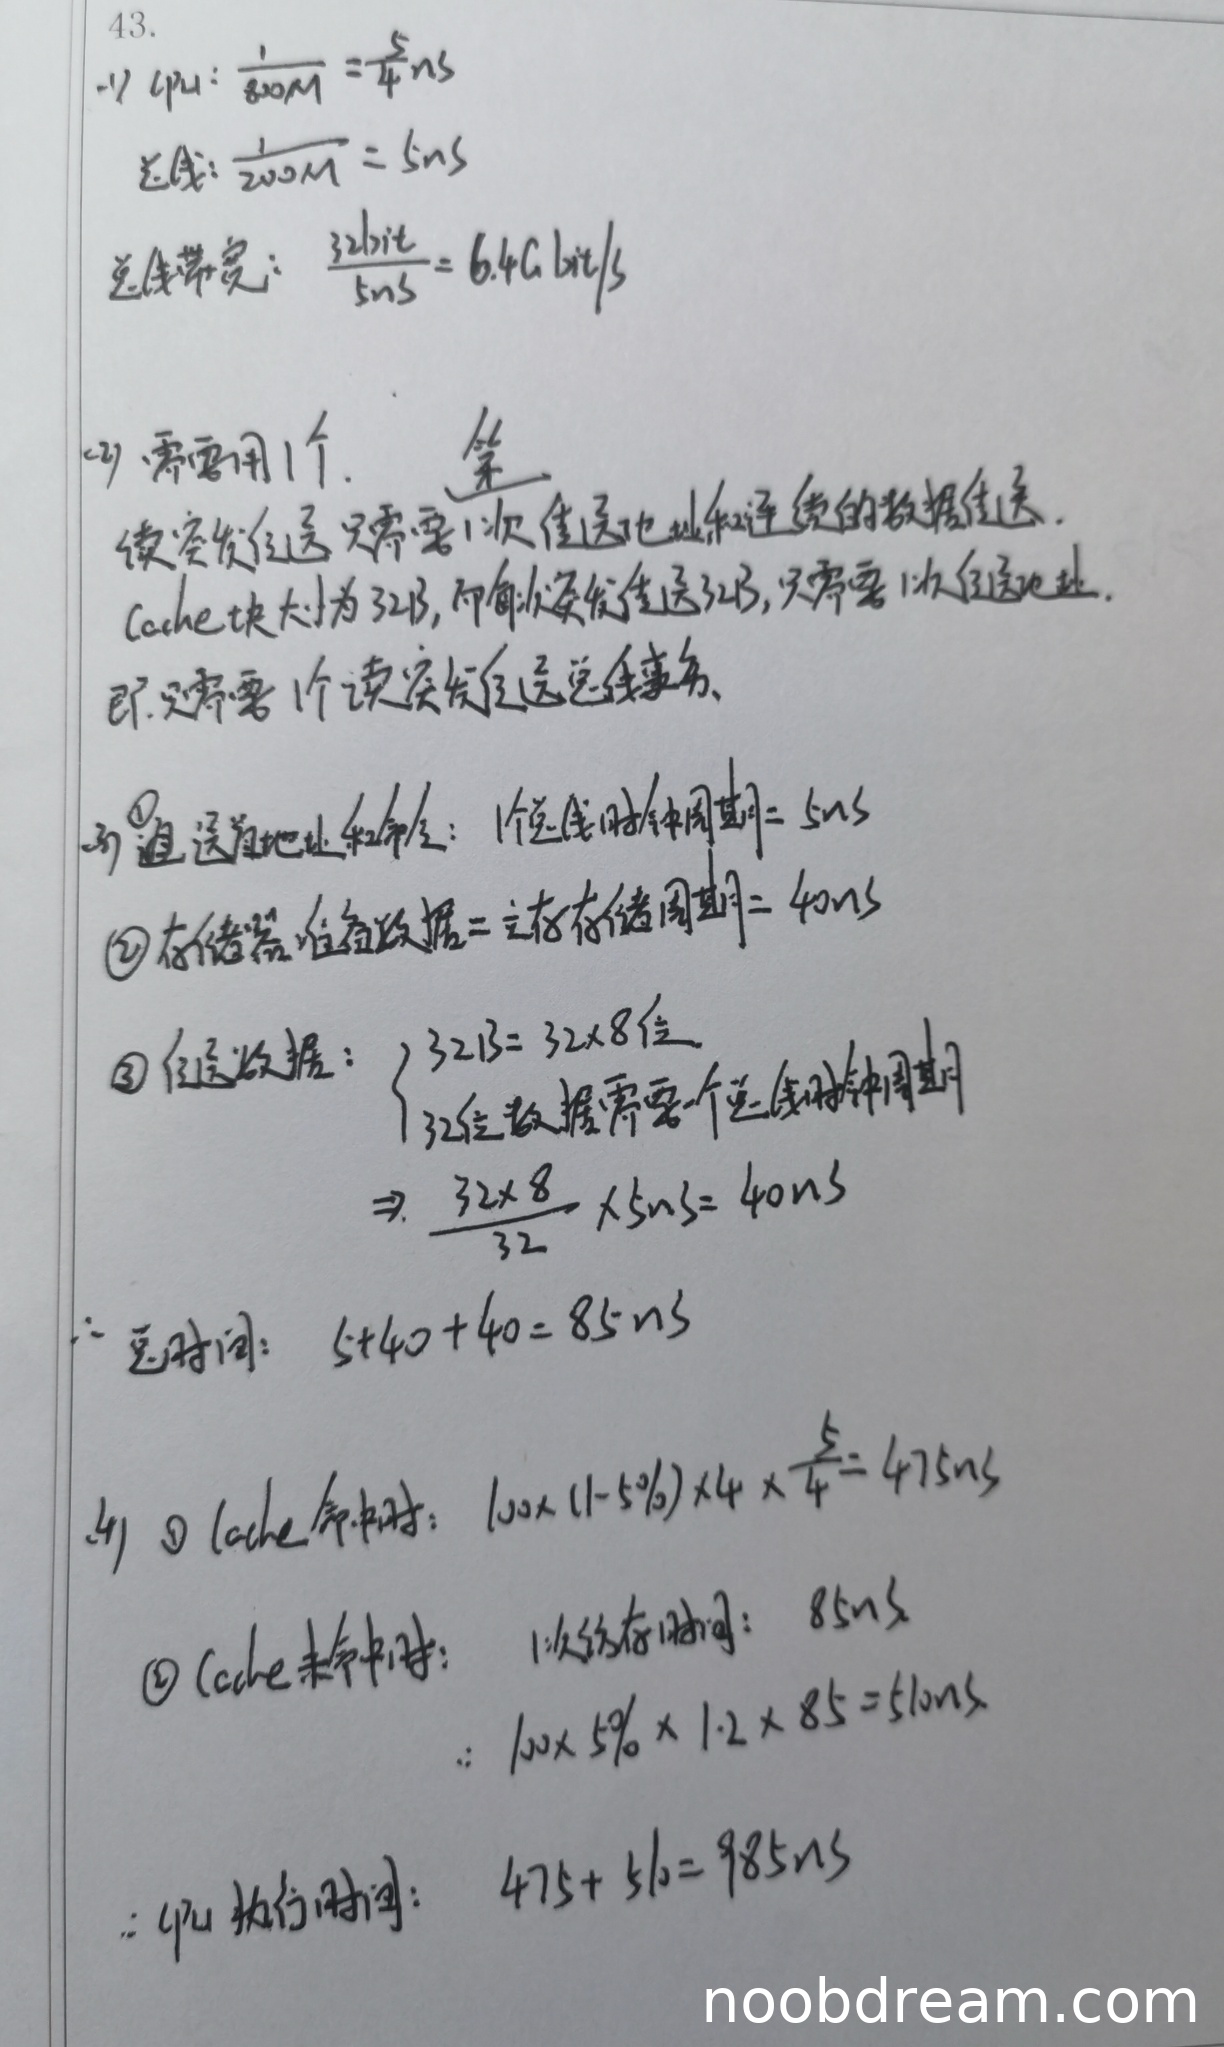 43.
(1) CPU: 1/800M = 5/4 ns
总线: 1/200M = 5ns
总线带宽: 32bit/5ns = 6.4G bit/s
(2) 需要用1个. 第
读突发传送只需要1次传送地址和连续的数据传送.
Cache块大小为32B, 即每次突发传送32B, 只需要1次传送地址.
即只需要1个读突发传送总线事务、
(3) ① 送首地址和命令: 1个总线时钟周期 = 5ns
② 存储器准备数据 = 主存存储周期 = 40ns
③ 传送数据: { 32B = 32×8位
32位数据需要一个总线时钟周期
⇒ 32×8/32 × 5ns = 40ns
∴ 总时间: 5+40+40 = 85ns
(4) ① Cache命中时: 100×(1-5%)×4×5/4 = 475ns
② Cache未命中时: 1次访存时间: 85ns
∴ 100×5%×1.2×85 = 510ns
∴ CPU执行时间: 475+510 = 985ns
noobdream.com